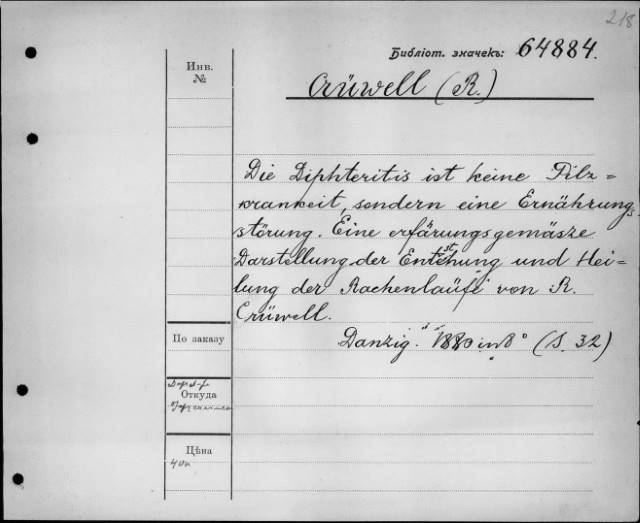 218
Библіот. значекъ: 64884.
Инв.
№
Crüwell (R.)
Die Diphteritis ist keine Pilz=
krankeit, sondern eine Ernährungs
störung. Eine erfärungsgemäsze
Darstellung der Entstehung und Hei=
lung der Rachenläufe von R.
Crüwell.
По заказу
Danzig. 1880 in 8° (S. 32)
Откуда
Цѣна
40к